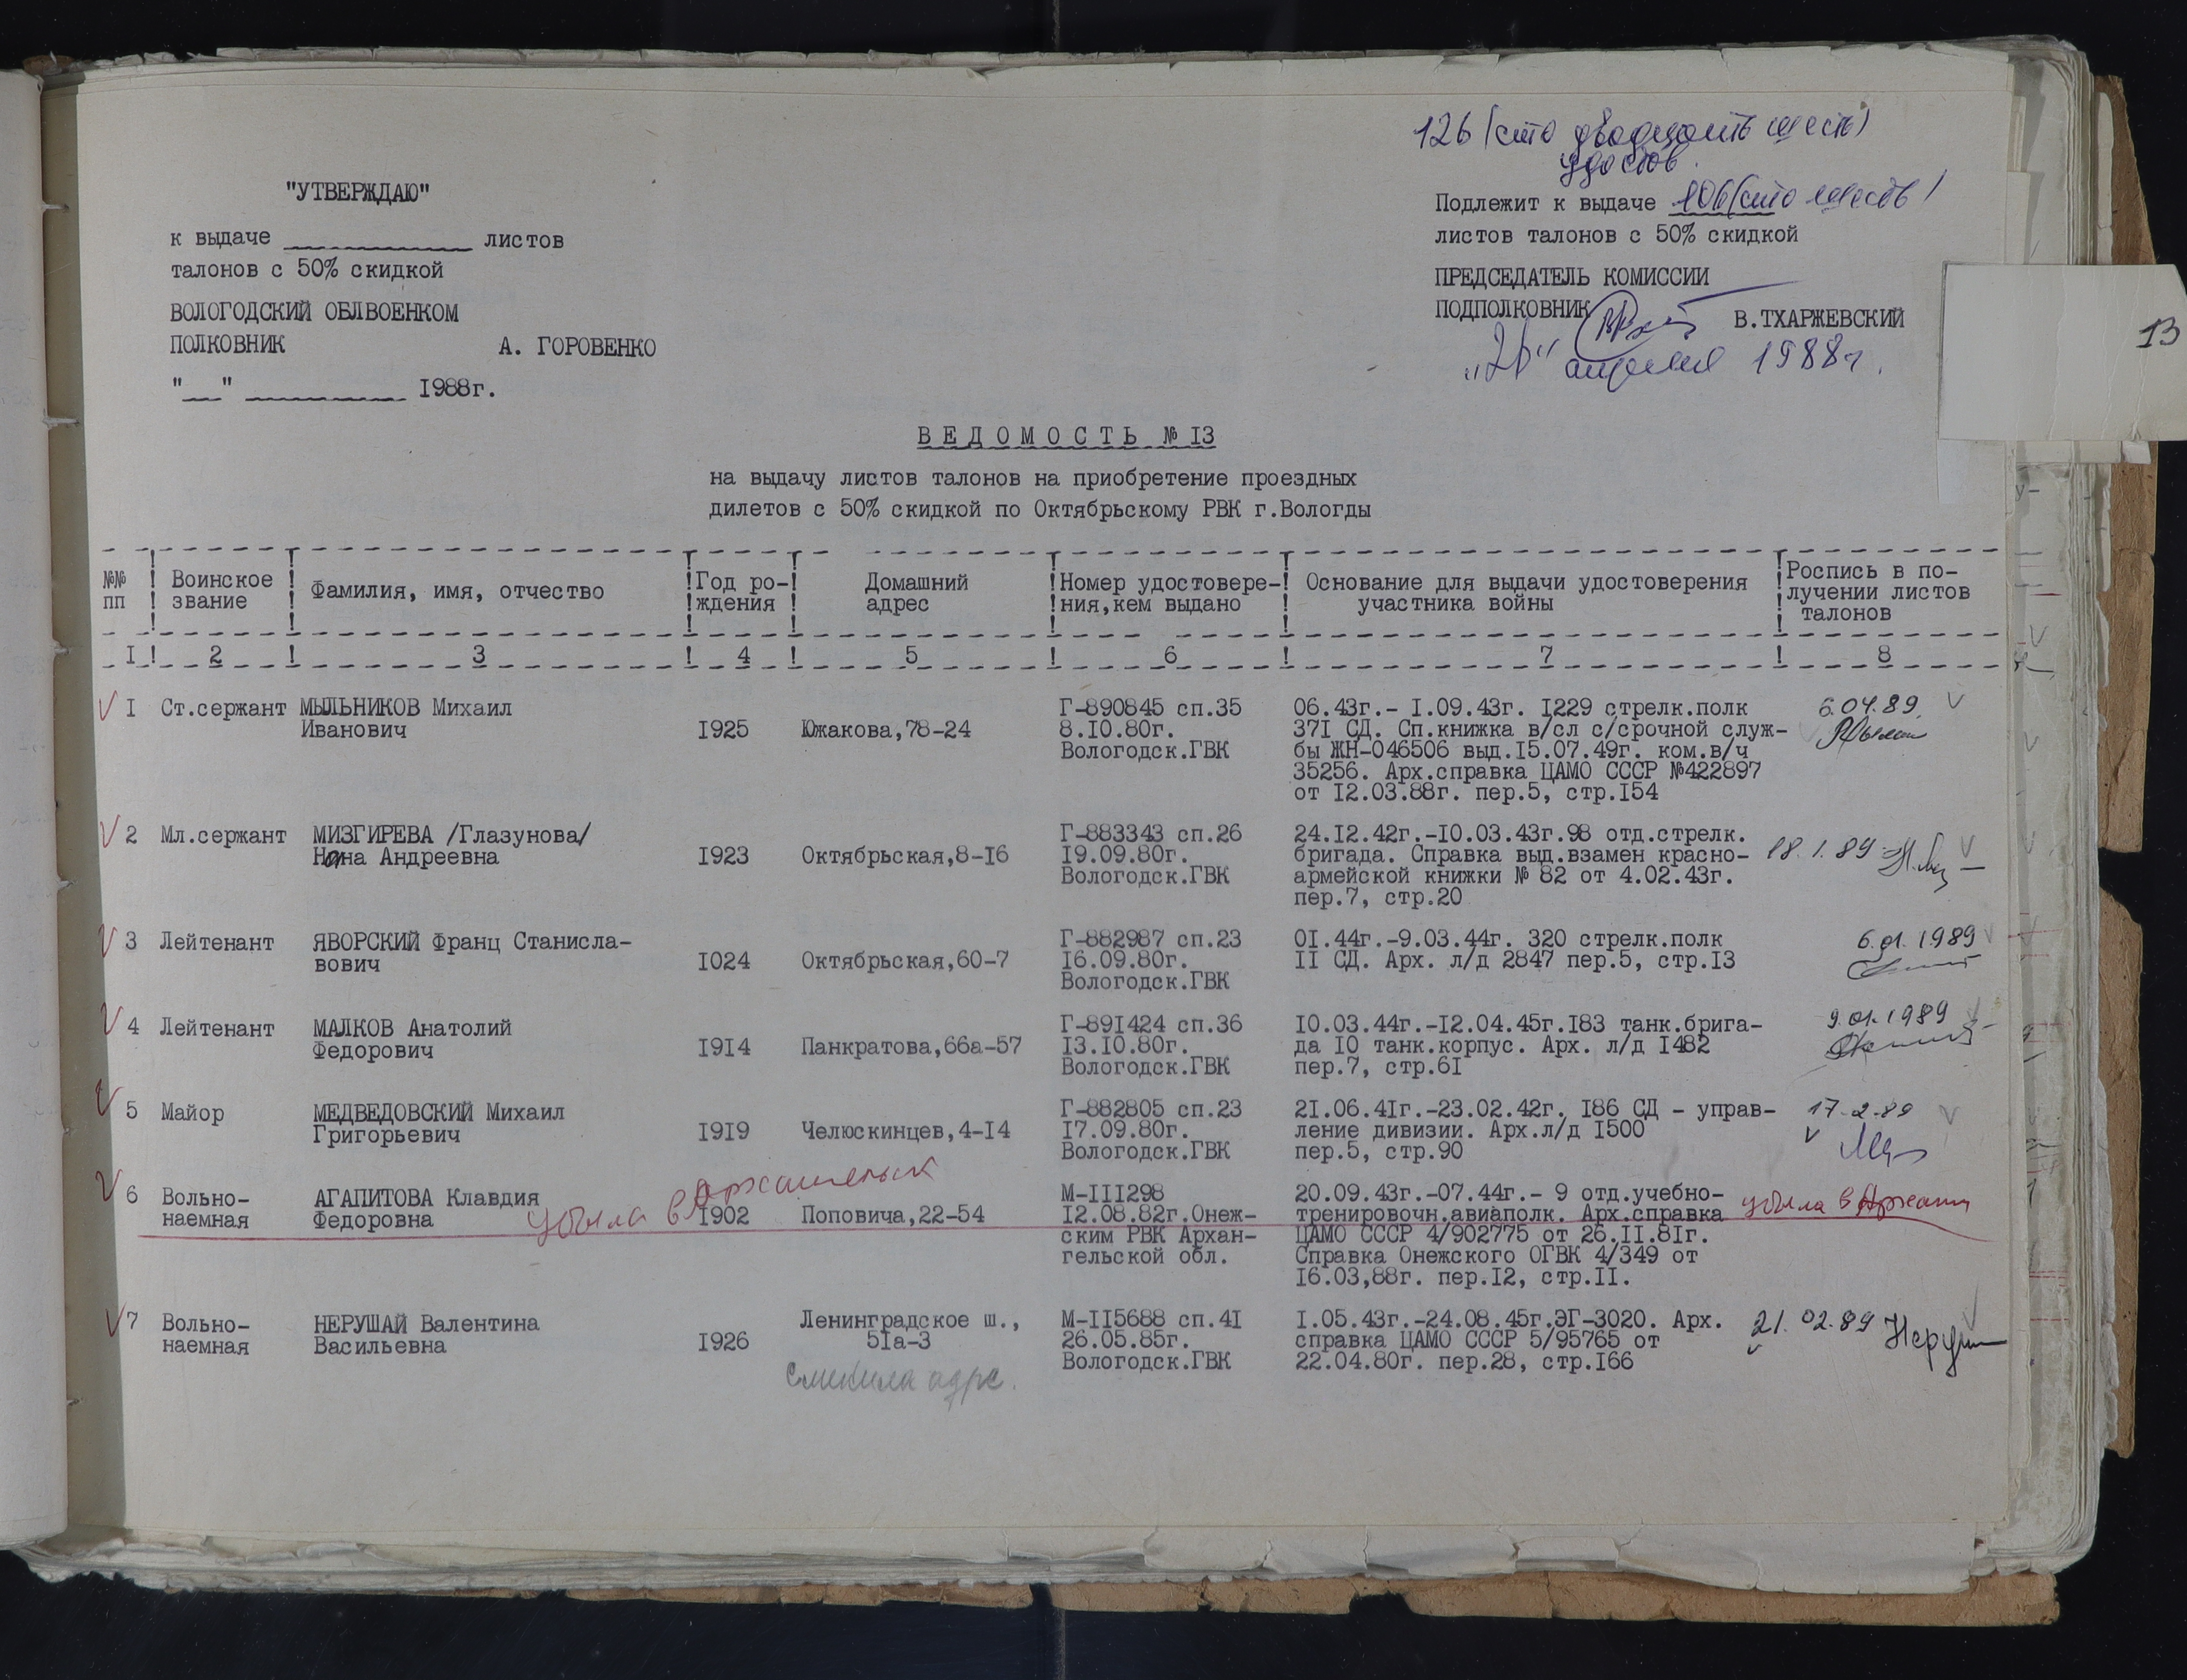 126 (сто двадцать шесть)
удостов.
"УТВЕРЖДАЮ"
к выдаче ____________ листов
талонов с 50% скидкой
ВОЛОГОДСКИЙ ОБЛВОЕНКОМ
ПОЛКОВНИК А. ГОРОВЕНКО
"__" __________ 1988г.
Подлежит к выдаче 106 (сто шесть)
листов талонов с 50% скидкой
ПРЕДСЕДАТЕЛЬ КОМИССИИ
ПОДПОЛКОВНИК В.ТХАРЖЕВСКИЙ
"26" апреля 1988г.
13
ВЕДОМОСТЬ № 13
на выдачу листов талонов на приобретение проездных
дилетов с 50% скидкой по Октябрьскому РВК г.Вологды
№№ пп ! Воинское звание ! Фамилия, имя, отчество ! Год ро-ждения ! Домашний адрес ! Номер удостовере-ния,кем выдано ! Основание для выдачи удостоверения участника войны ! Роспись в по-лучении листов талонов
1 ! 2 ! 3 ! 4 ! 5 ! 6 ! 7 ! 8
1 Ст.сержант МЫЛЬНИКОВ Михаил Г-890845 сп.35 06.43г.- 1.09.43г. 1229 стрелк.полк 6.04.89.
Иванович 1925 Южакова,78-24 8.10.80г. 371 СД. Сп.книжка в/сл с/срочной служ-
Вологодск.ГВК бы ЖН-046506 выд.15.07.49г. ком.в/ч
35256. Арх.справка ЦАМО СССР №422897
от 12.03.88г. пер.5, стр.154
2 Мл.сержант МИЗГИРЕВА /Глазунова/ Г-883343 сп.26 24.12.42г.-10.03.43г.98 отд.стрелк.
Нона Андреевна 1923 Октябрьская,8-16 19.09.80г. бригада. Справка выд.взамен красно- 18.1.89
Вологодск.ГВК армейской книжки № 82 от 4.02.43г.
пер.7, стр.20
3 Лейтенант ЯВОРСКИЙ Франц Станисла- Г-882987 сп.23 01.44г.-9.03.44г. 320 стрелк.полк 6.01.1989
вович 1024 Октябрьская,60-7 16.09.80г. 11 СД. Арх. л/д 2847 пер.5, стр.13
Вологодск.ГВК
4 Лейтенант МАЛКОВ Анатолий Г-891424 сп.36 10.03.44г.-12.04.45г.183 танк.брига- 9.01.1989
Федорович 1914 Панкратова,66а-57 13.10.80г. да 10 танк.корпус. Арх. л/д 1482
Вологодск.ГВК пер.7, стр.61
5 Майор МЕДВЕДОВСКИЙ Михаил Г-882805 сп.23 21.06.41г.-23.02.42г. 186 СД - управ- 17.2.89
Григорьевич 1919 Челюскинцев,4-14 17.09.80г. ление дивизии. Арх.л/д 1500
Вологодск.ГВК пер.5, стр.90
6 Вольно- АГАПИТОВА Клавдия убыла в Архангельск М-111298 20.09.43г.-07.44г.- 9 отд.учебно- убыла в Арханг
наемная Федоровна 1902 Поповича,22-54 12.08.82г.Онеж- тренировочн.авиаполк. Арх.справка
ским РВК Архан- ЦАМО СССР 4/902775 от 26.11.81г.
гельской обл. Справка Онежского ОГВК 4/349 от
16.03,88г. пер.12, стр.11.
7 Вольно- НЕРУШАЙ Валентина Ленинградское ш., М-115688 сп.41 1.05.43г.-24.08.45г.ЭГ-3020. Арх. 21.02.89 Неруш
наемная Васильевна 1926 51а-3 26.05.85г. справка ЦАМО СССР 5/95765 от
Вологодск.ГВК 22.04.80г. пер.28, стр.166
сменила адрс.